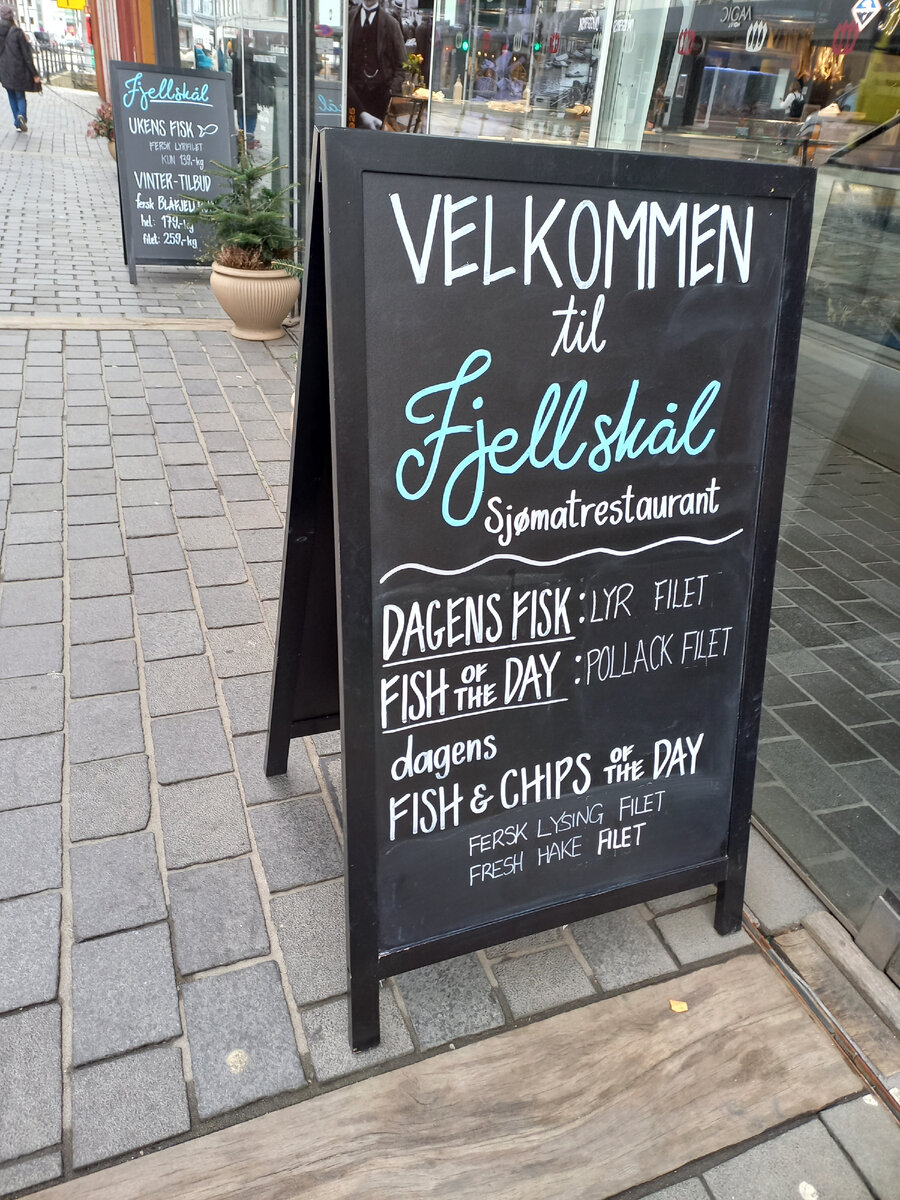 Fjellskål
UKENS FISK
FERSK LYRFILET
KUN 139,-kg
VINTER-TILBUD
fersk
hel: 179,-kg
filet: 259,-kg
VELKOMMEN
til
Fjellskål
Sjømatrestaurant
DAGENS FISK: LYR FILET
FISH OF THE DAY: POLLACK FILET
dagens
FISH & CHIPS OF THE DAY
FERSK LYSING FILET
FRESH HAKE FILET
MAGIC